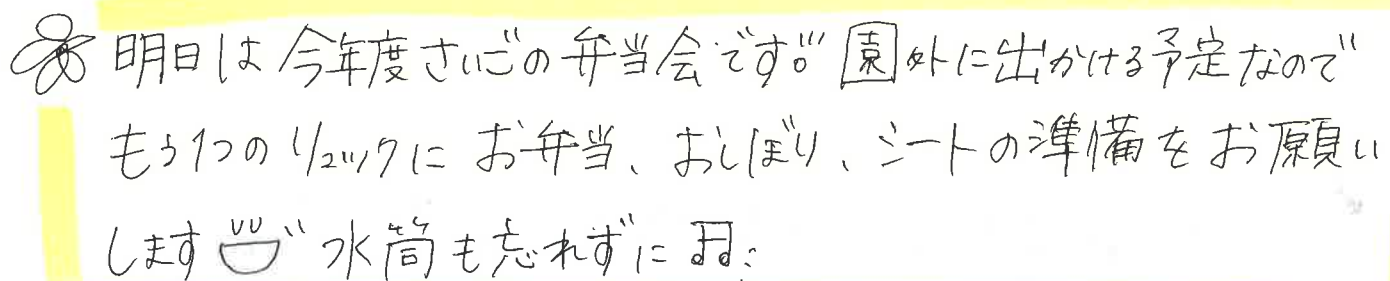 明日は今年度さいごの弁当会です。園外に出かける予定なので
もう1つのリュックにお弁当、おしぼり、シートの準備をお願い
します 水筒も忘れずに♫